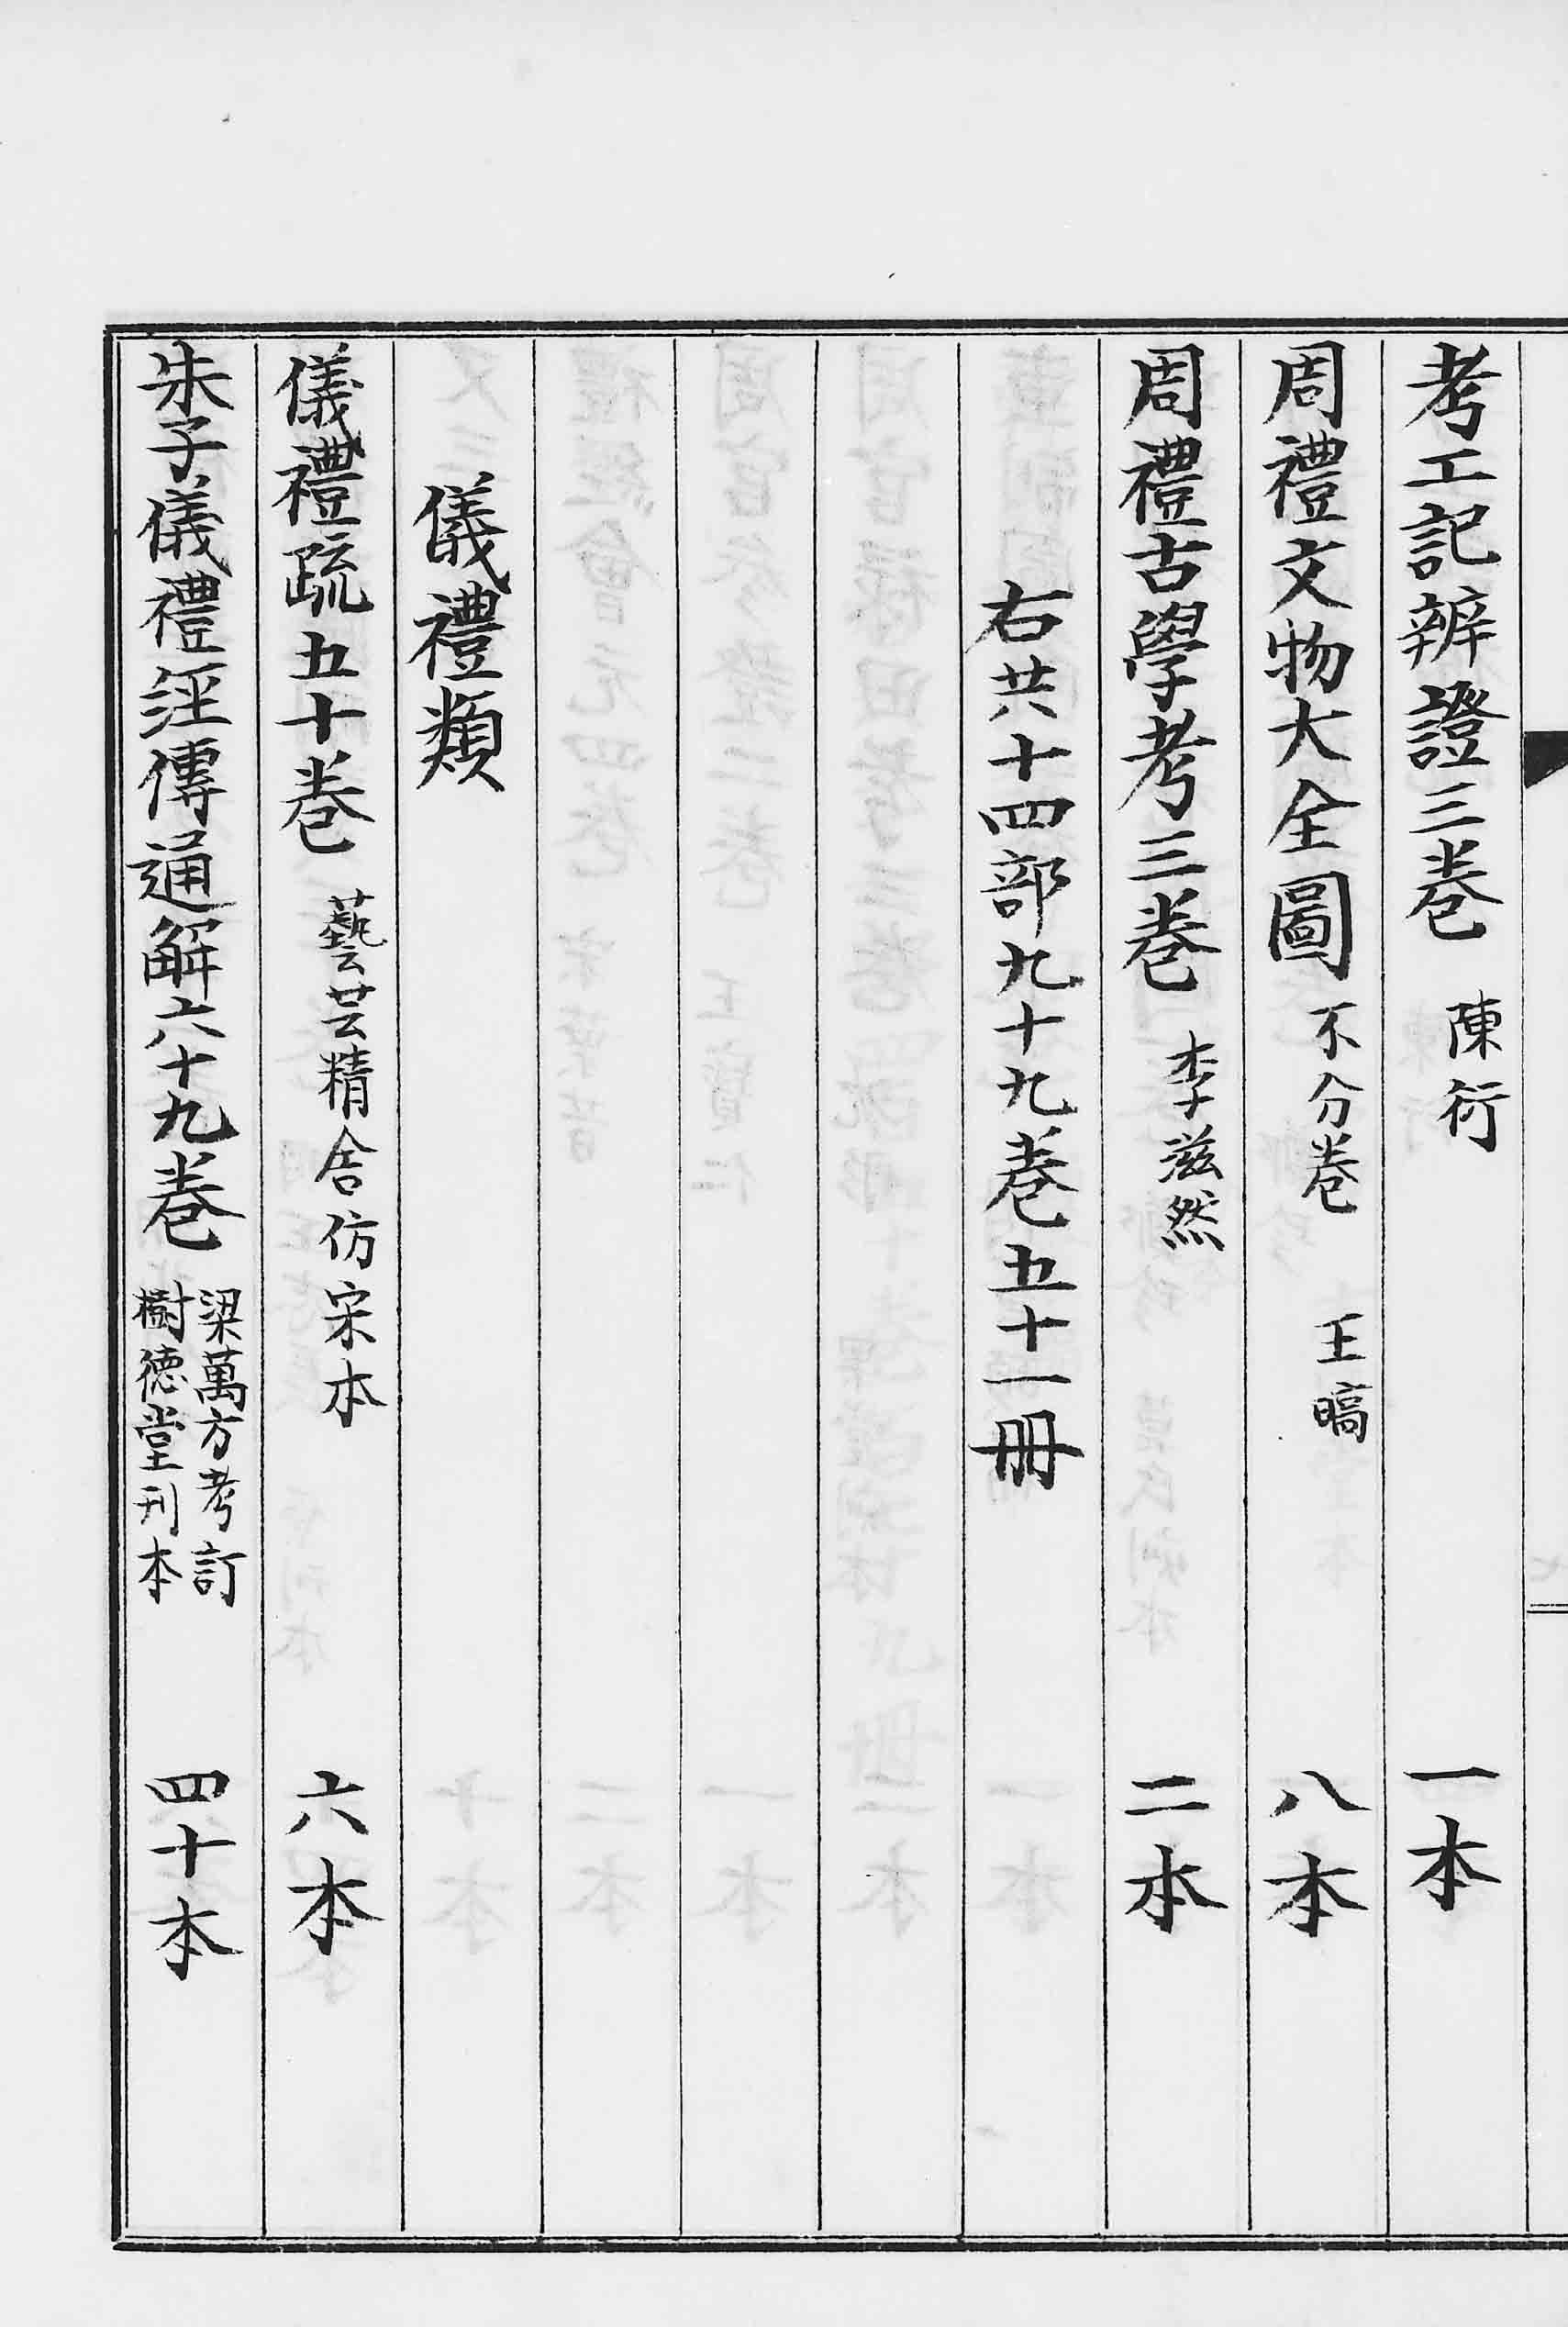 考工記辨證三卷 陳衍 一本
周禮文物大全圖 不分卷 王暠 八本
周禮古學考三卷 李滋然 二本
右共十四部九十九卷五十一冊
儀禮類
儀禮疏五十卷 藝芸精舍仿宋本 六本
朱子儀禮經傳通解六十九卷 梁萬方考訂 樹德堂刊本 四十本